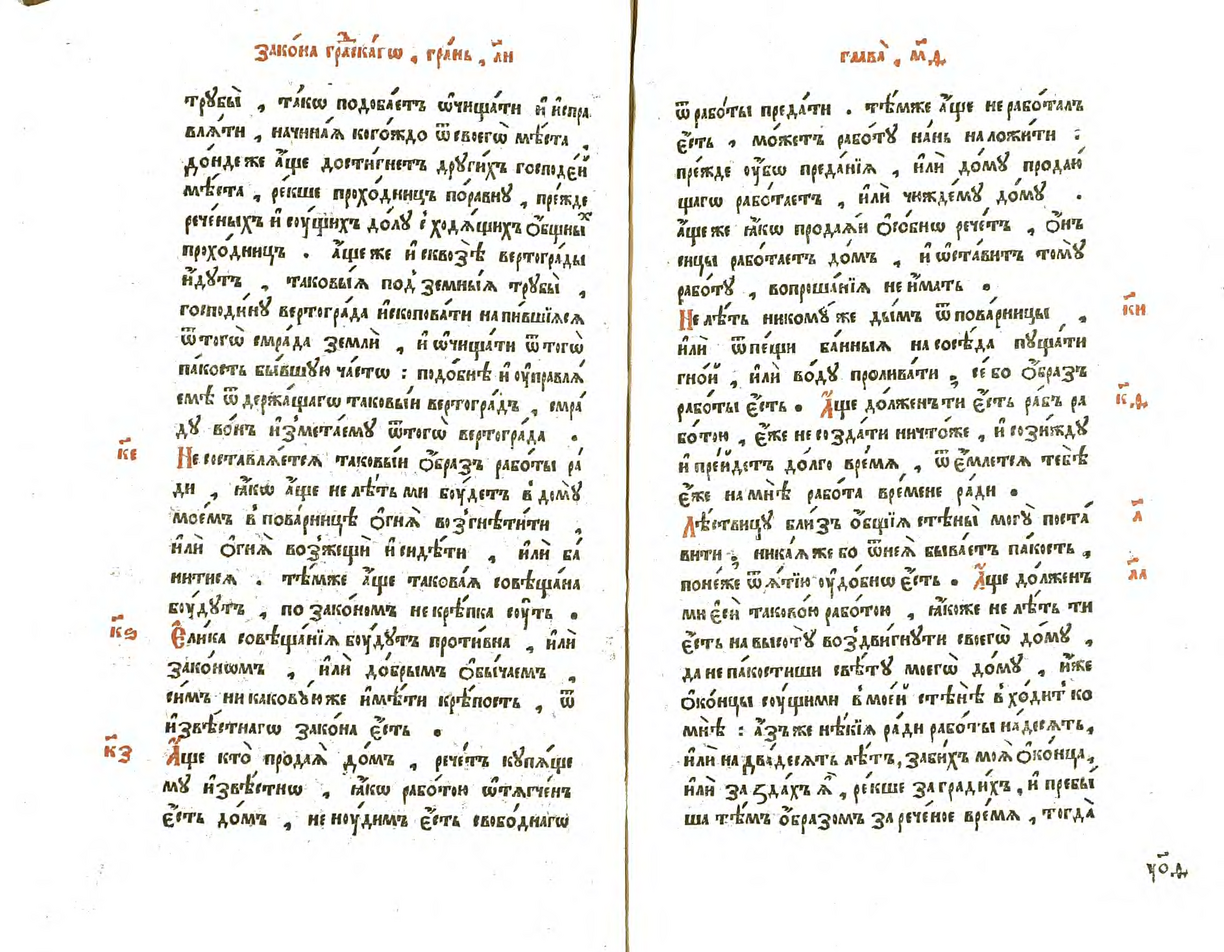 Зако́на гра́дскагѡ , гра́нь , л҃и
трꙋбы̀ , та́кѡ подоба́етъ ѡ҆чища́ти и҆ и҆спра
влѧ́ти , начина́ѧ кого́ждо ѿ своегѡ̀ мѣ́ста ,
до́ндеже а҆́ще дости́гнетъ дрꙋги́хъ господе́й
мѣ́ста , ре́кше прохо́дницъ по́равнꙋ , пре́жде
рече́ныхъ и҆ сꙋ́щихъ до́лꙋ с̾ходѧ́щихъ ѻ҆́бщины̑х
прохо́дницъ . а҆́ще же и҆ сквоз̾ѣ̀ вертогра́ды
и҆́дꙋтъ , таковы́ѧ под̾зе́мныѧ трꙋбы̀ ,
господи́нꙋ вертогра́да и҆скопова́ти напи́вшїѧсѧ
ѿ тогѡ̀ смра́да землѝ , и҆ ѡ҆чища́ти ѿ тогѡ̀
па́кость бы́вшꙋю ча́стѡ : подо́бнѣ и҆ ᲂу҆правлѧ́
емѣ ѿ держа́щагѡ таковы́и вертогра́дъ , смра́
дꙋ во́нъ и҆змета́емꙋ ѿ тогѡ̀ вертогра́да .
к҃е
Не составлѧ́етсѧ таковы́и ѻ҆́бразъ рабо́ты ра́
ди , ꙗ҆́кѡ а҆́ще не лѣ́ть ми бꙋ́детъ в̾ домꙋ̀
мое́мъ в̾ пова́рницѣ ѻ҆гнѧ̀ воз̾гнѣти́ти ,
и҆лѝ ѻ҆гнѧ̀ воз̾же́щи и҆ сидѣ́ти , и҆лѝ ба́
нитисѧ . тѣ́мже а҆́ще такова́ѧ совѣща́на
бꙋ́дꙋтъ , по зако́номъ не крѣ́пка сꙋ́ть .
к҃ѕ
Е҆ли́ка совѣща́нїѧ бꙋ́дꙋтъ проти́вна , и҆лѝ
зако́нѡмъ , и҆лѝ до́брымъ ѻ҆бы́чаемъ ,
си́мъ никаковꙋ́ю же и҆мѣ́ти крѣ́пость , ѿ
и҆звѣ́стнагѡ зако́на є҆́сть .
к҃з
А҆́ще кто̀ прода́ѧ до́мъ , рече́тъ кꙋпѧ́ще
мꙋ и҆звѣ́стнѡ , ꙗ҆́кѡ рабо́тою ѡ҆тѧгче́нъ
є҆́сть до́мъ , не нꙋ́димъ є҆́сть свобо́днагѡ
глава̀ , м҃д .
ѿ рабо́ты преда́ти . тѣ́мже а҆́ще не рабо́талъ
є҆́сть , мо́жетъ рабо́тꙋ на́нь наложи́ти :
пре́жде ᲂу҆́бѡ преда́нїѧ , и҆лѝ до́мꙋ продаю́
щагѡ рабо́таетъ , и҆лѝ чꙋжде́мꙋ до́мꙋ .
а҆́ще же ꙗ҆́кѡ продаѧ́и ѻ҆со́бнѡ рече́тъ , ѻ҆́нъ
сицы рабо́таетъ до́мъ , и҆ ѡ҆ста́витъ томꙋ̀
рабо́тꙋ , вопроша́нїѧ не и҆́мать .
к҃и
Не лѣ́ть никомꙋ́же ды́мъ ѿ пова́рницы ,
и҆лѝ ѿ пе́щи ба́нныѧ на сосѣ́да пꙋща́ти
гно́й , и҆лѝ во́дꙋ пролива́ти , се́ бо ѻ҆́бразъ
рабо́ты є҆́сть . А҆́ще до́лженъ ти є҆́сть ра́бъ ра
к҃д .
бо́тою , є҆́же не созда́ти ничто́же , и҆ сози́ждꙋ
и҆ пре́йдетъ до́лго вре́мѧ , ѿе́млетсѧ тебѣ̀
є҆́же на мнѣ̀ рабо́та вре́мене ра́ди .
л҃
Лѣ́ствицꙋ бли́зъ ѻ҆́бщїѧ стѣны̀ могꙋ̀ поста́
вити , никаѧ́же бо ѿ неѧ̀ быва́етъ па́кость ,
поне́же ѿѧ́тїю ᲂу҆до́бнѡ є҆́сть . А҆́ще до́лженъ
л҃а
ми є҆сѝ таково́ю рабо́тою , ꙗ҆́коже не лѣ́ть ти
є҆́сть на высотꙋ̀ воз̾дви́гнꙋти своегѡ̀ до́мꙋ ,
да не па́костиши свѣ́тꙋ моегѡ̀ до́мꙋ , и҆́же
ѻ҆ко́нцы сꙋ́щими в̾ мое́й стѣнѣ̀ в̾хо́дит̾ ко
мнѣ̀ : а҆́зъ же нѣ́кїѧ ра́ди рабо́ты на де́сѧть ,
и҆лѝ на два́десѧть лѣ́тъ , заби́хъ моѧ̀ ѻ҆ко́нца ,
и҆лѝ заꙁда́хъ ѧ҆̀ , ре́кше загради́хъ , и҆ пребы́
ша тѣ́мъ ѻ҆́бразомъ за рече́ное вре́мѧ , тогда̀
ѵ҃о.д